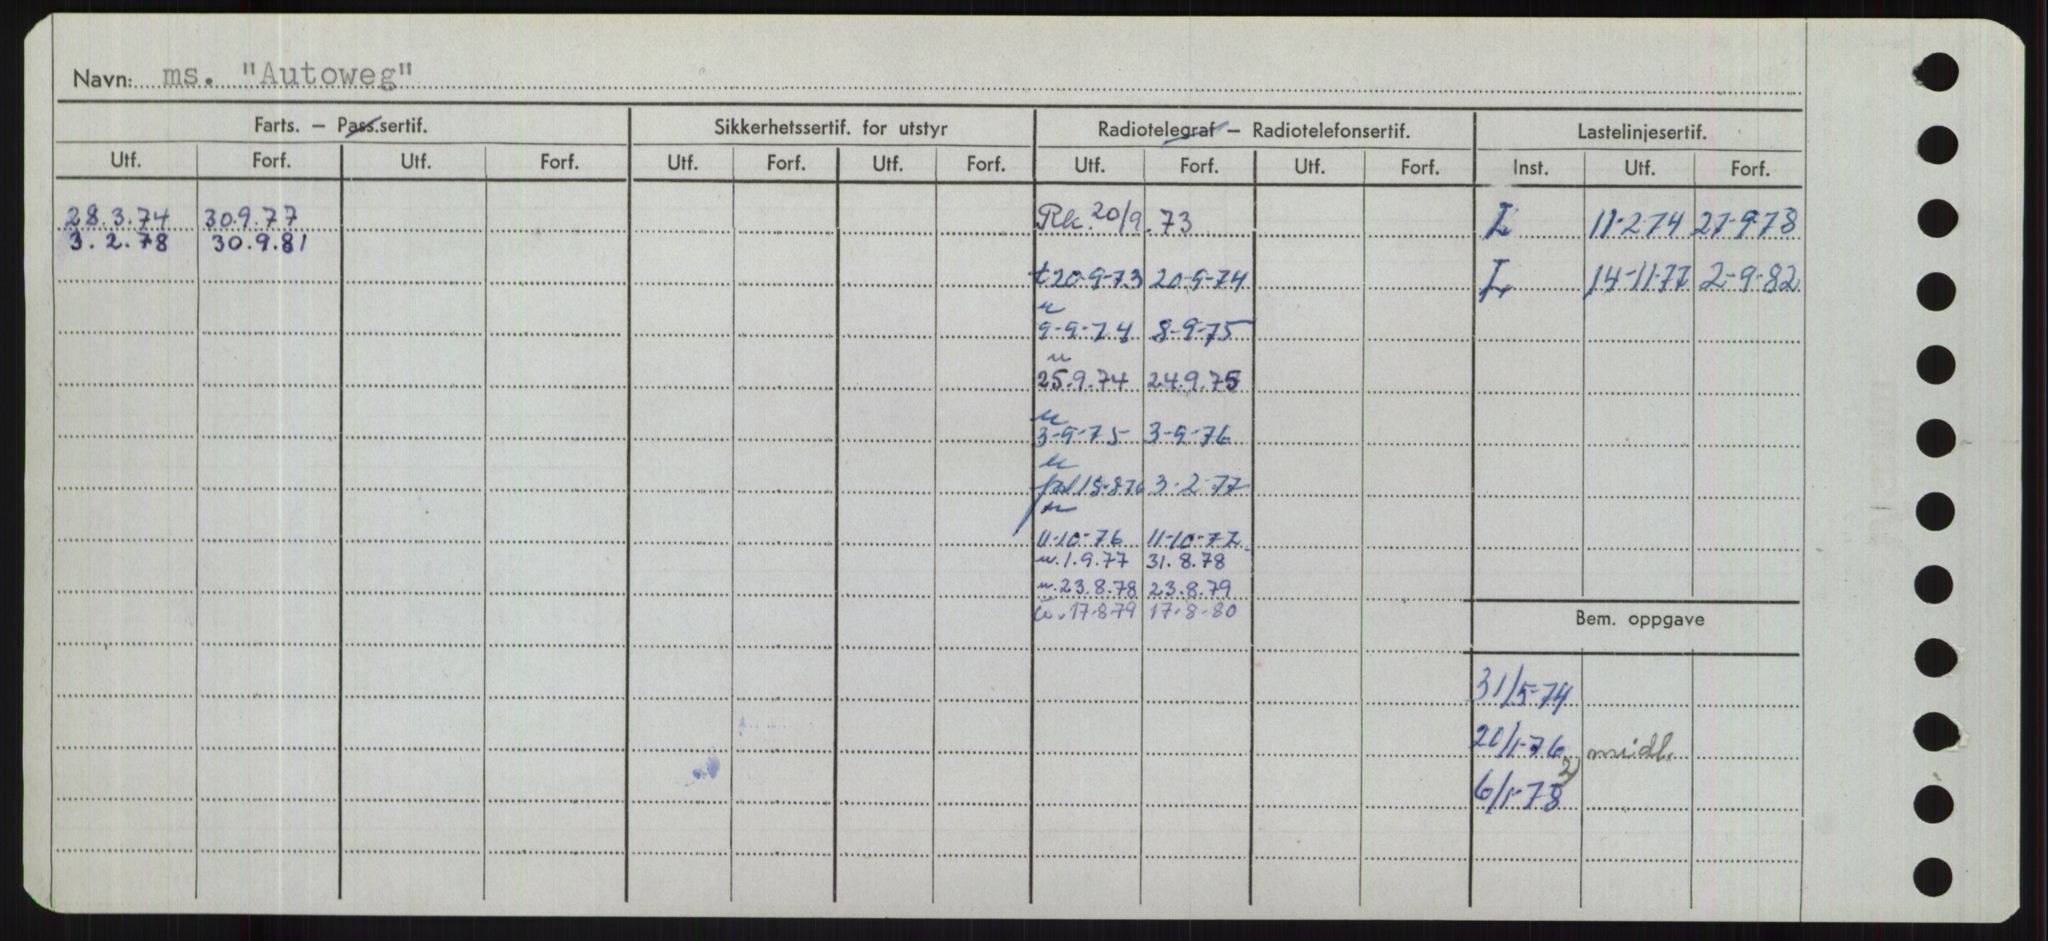 Navn: ms. "Autoweg"
Farts. – Pass.sertif. Sikkerhetssertif. for utstyr Radiotelegraf – Radiotelefonsertif. Lastelinjesertif.
Utf. Forf. Utf. Forf. Utf. Forf. Utf. Forf. Utf. Forf. Utf. Forf. Inst. Utf. Forf.
28.3.74 30.9.77 Rk. 20/9.73 L 11-2-74 27-9-78
3.2.78 30.9.81
t 20-9-73 20-9-74 L 14-11-77 2-9-82
u
9-9-74 8-9-75
u
25.9.74 24.9.75
u
3-9-75 3-9-76
u
18-8-76 3-2-77
u
11-10-76 11-10-77
u. 1.9.77 31.8.78
u. 23.8.78 23.8.79
u. 17-8-79 17-8-80
Bem. oppgave
31/5-74
20/1-76 midl.
2)
6/1-78